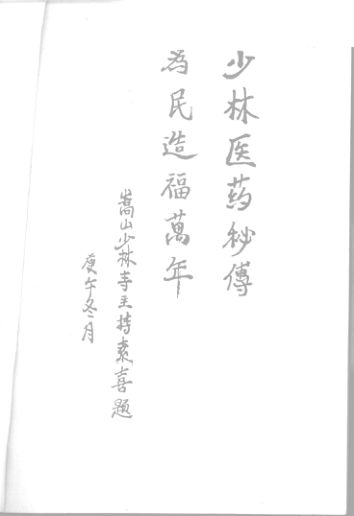 少林医药秘傳
為民造福萬年
嵩山少林寺主持素喜題
庚午冬月